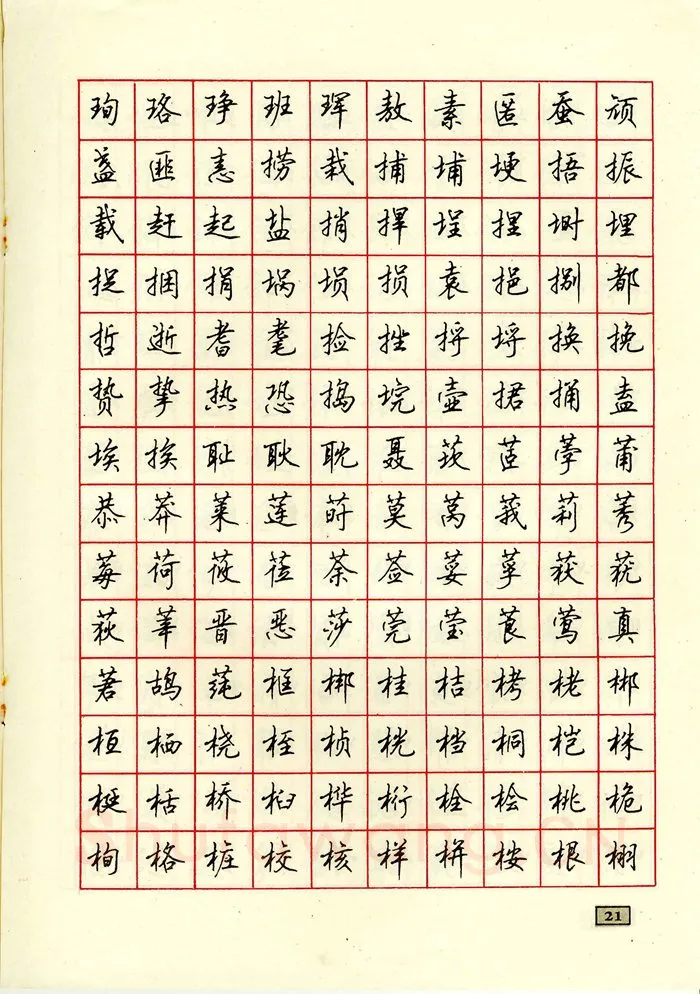 珣珞琤班珲敖素匿蚕顽
盏匪恚捞栽捕埔埂捂振
载赶起盐捎捍埕捏埘埋
捉捆捐埚埙损袁挹捌都
哲逝耆耄捡挫捋埒换挽
贽挚热恐捣垸壶捃捅盍
埃挨耻耿耽聂莰茝荸莆
恭莽莱莲莳莫莴莪莉莠
莓荷莜莅荼莶荽莩荻莸
荻莘晋恶莎莞莹莨莺真
莙鸪莼框梆桂桔栲栳郴
桓栖桡桎桢桄档桐桤株
梃栝桥桕桦桁栓桧桃桅
栒格桩校核样栟桉根栩
Shufawang.CN
21